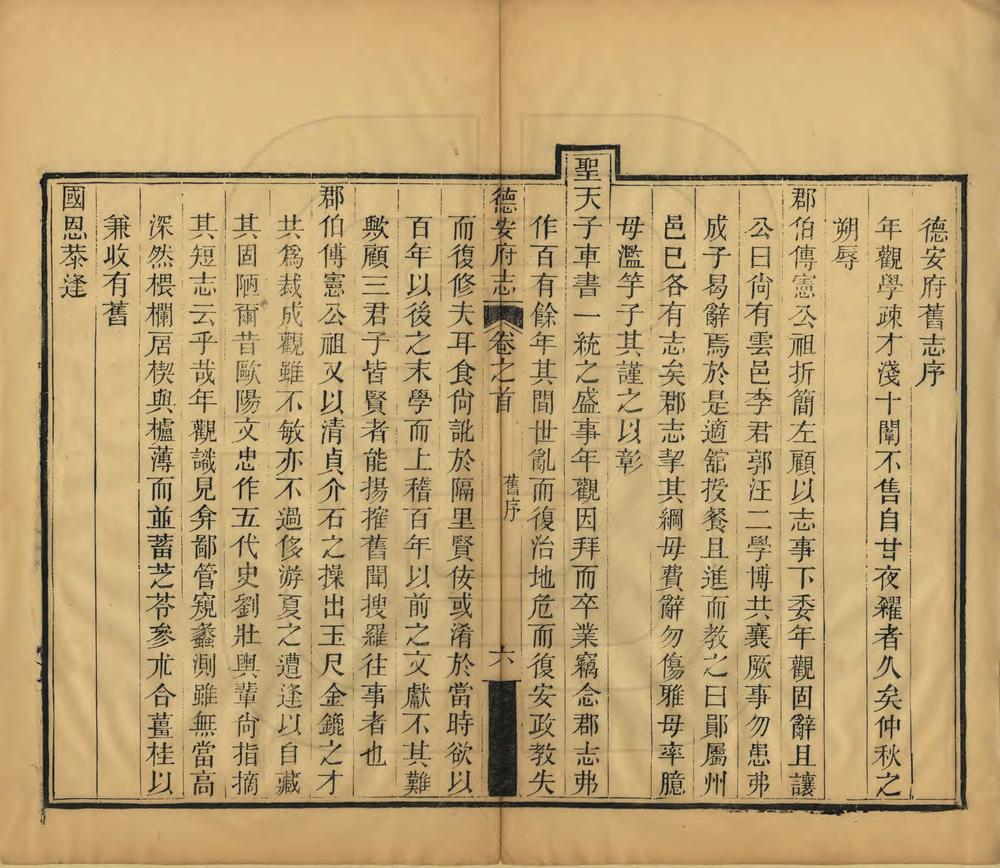 德安府舊志序
年觀學疎才淺十闈不售自甘夜糴者久矣仲秋之
朔辱
郡伯傳憲公祖折簡左顧以志事下委年觀固辭且讓
公曰尙有雲邑李君郭汪二學博共襄厥事勿患弗
成子曷辭焉於是適舘授餐且進而教之曰鄖屬州
邑已各有志矣郡志挈其綱毋費辭勿傷雅毋率臆
毋濫竽子其謹之以彰
聖天子車書一統之盛事年觀因拜而卒業竊念郡志弗
作百有餘年其間世亂而復治地危而復安政教失
德安府志 卷之首 舊序 六
而復修夫耳食尙訛於隔里賢佞或淆於當時欲以
百年以後之末學而上稽百年以前之文獻不其難
歟顧三君子皆賢者能揚搉舊聞搜羅往事者也
郡伯傳憲公祖又以清貞介石之操出玉尺金鎞之才
共爲裁成觀雖不敏亦不過侈游夏之遭逢以自藏
其固陋爾昔歐陽文忠作五代史劉壯輿輩尙指摘
其短志云乎哉年觀識見弇鄙管窺蠡測雖無當高
深然椳欄居楔與櫨薄而並蓄芝苓參朮合薑桂以
兼收有舊
國恩萘逢